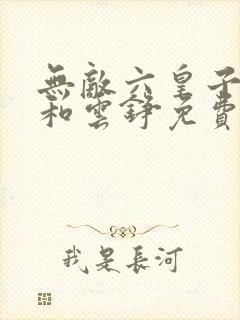 無敵六皇子
和雲錚免費
我是長河